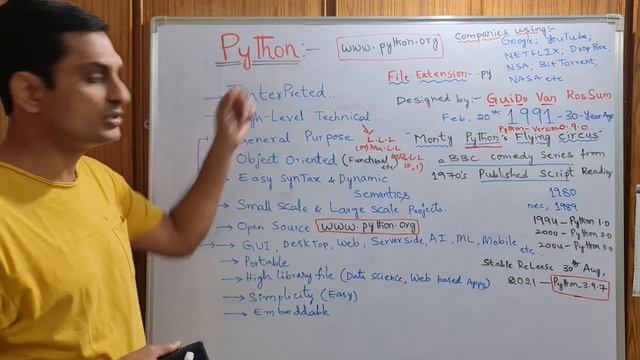 Python:-
www.python.org
Companies using:
Google, YouTube,
NETFLIX, DropBox,
NSA, BitTorrent,
NASA etc...
File Extension - .py
Designed by:- GuiDo Van RosSum
Feb. 20th 1991 - 30-Year Ago
Python - Version 0.9.0
"Monty Python's Flying circus"
a BBC comedy Series from
1970's Published Script Reading
1980
Dec, 1989
1994 - Python 1.0
2000 - Python 2.0
2004 - Python 3.0
Stable Release 30th Aug,
2021 - Python-3.9.7
→ InterPreted..
High-Level Technical...
General Purpose
L.L.L
(or) Ma.L.L
→ Object Oriented (Functional
etc)
(0,1)
→ Easy SynTax & Dynamic
Semantics
→ Small scale & Large Scale Projects.
→ Open Source www.python.org
→ GUI, DeskTop, Web, Serverside, AI, ML, Mobile etc..
→ Portable
→ High library file (Data science, Web based Apps)
→ Simplicity (Easy)
→ Embeddable